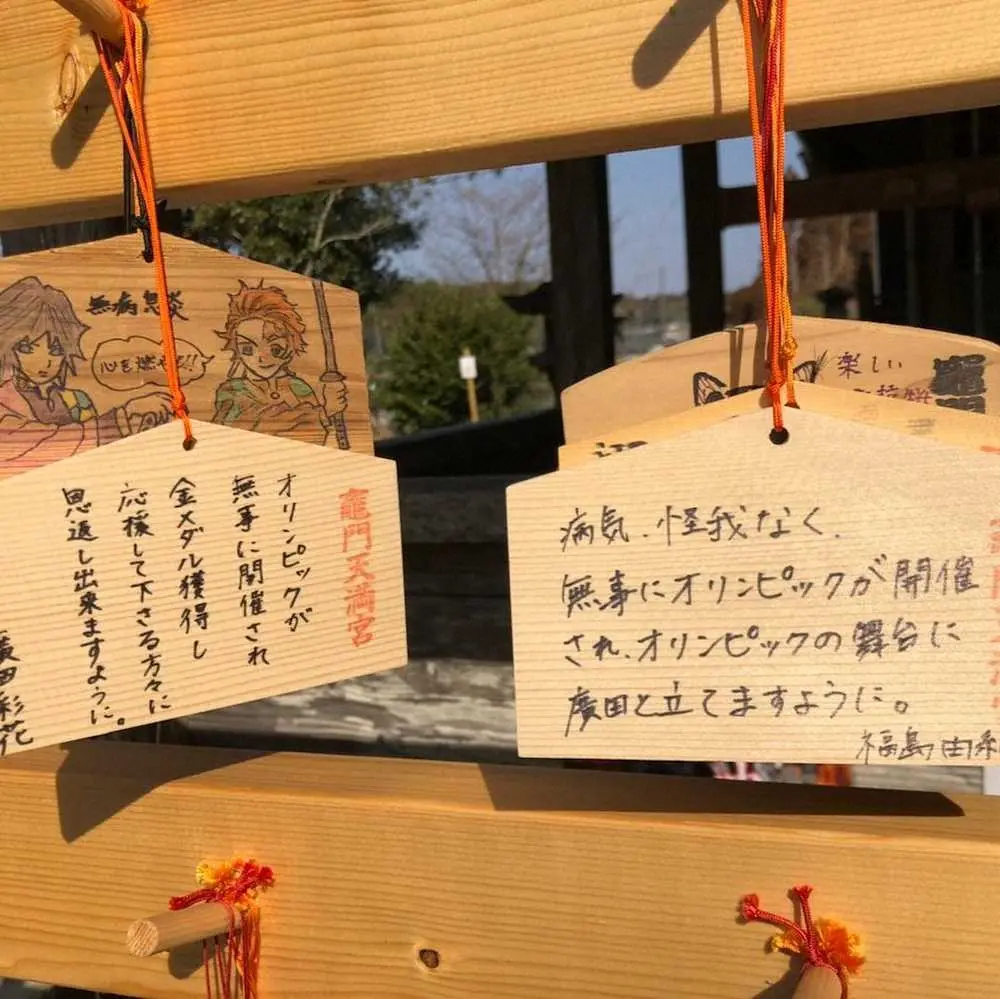 無病息災
心を燃やせ!!
竈門天満宮
オリンピックが
無事に開催され
金メダル獲得し
応援して下さる方々に
恩返し出来ますように。
廣田彩花
楽しい
竈
病気、怪我なく、
無事にオリンピックが開催
され、オリンピックの舞台に
廣田と立てますように。
福島由